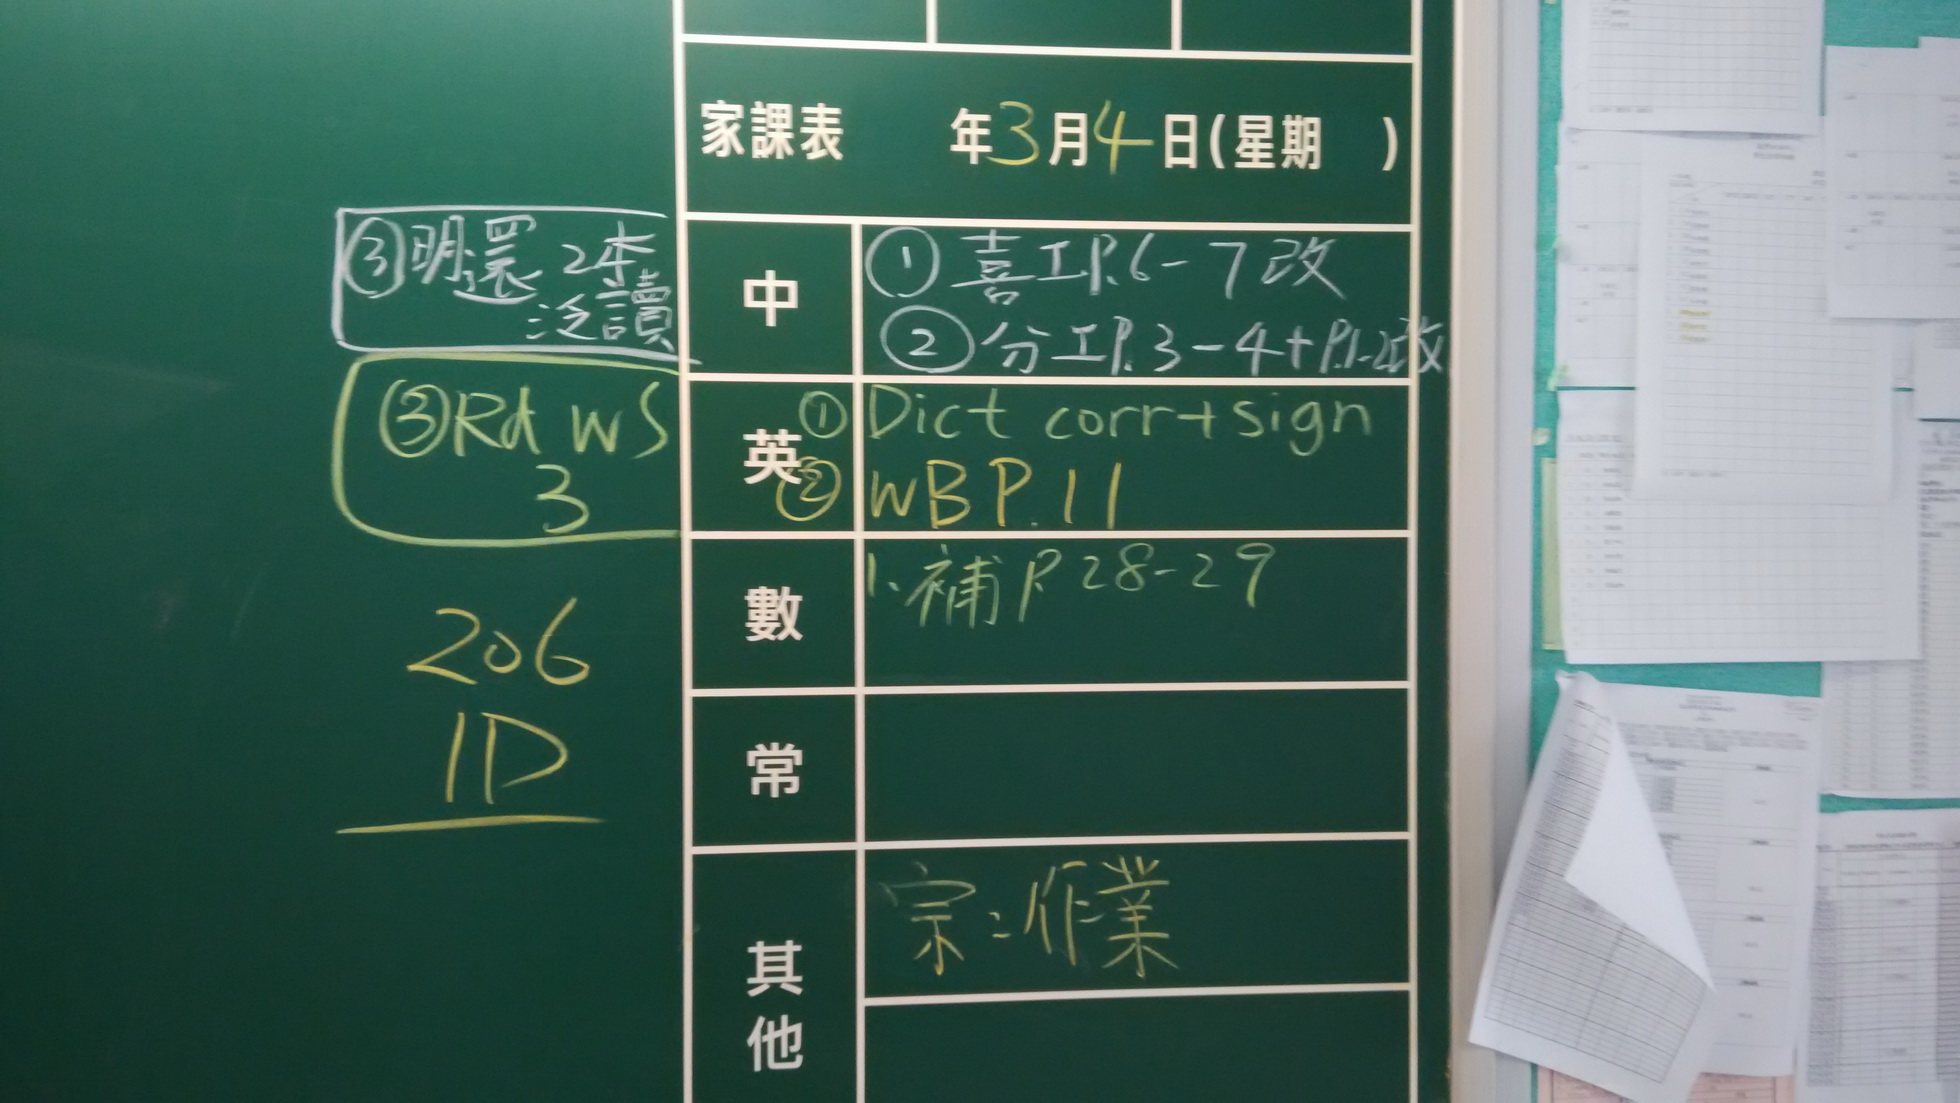 家課表 年3月4日(星期 )
中
① 喜工P.6-7改
② 分工P.3-4+P.1-2改
③明還 2本
泛讀
英
① Dict corr+sign
② WB P.11
③Rd WS
3
數
1. 補P.28-29
206
1D
常
其他
宗:作業